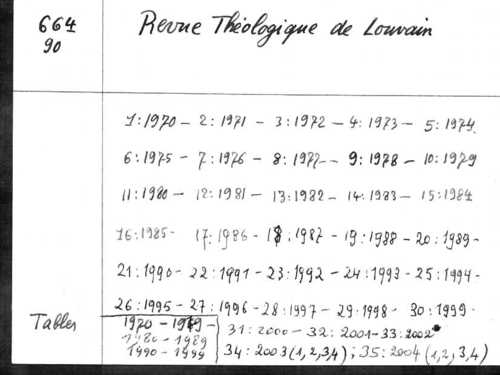 664
90
Revue Théologique de Louvain
1:1970 - 2:1971 - 3:1972 - 4:1973 - 5:1974.
6:1975 - 7:1976 - 8:1977 - 9:1978 - 10:1979
11:1980 - 12:1981 - 13:1982 - 14:1983 - 15:1984
16:1985 - 17:1986 - 18:1987 - 19:1988 - 20:1989 -
21:1990 - 22:1991 - 23:1992 - 24:1993 - 25:1994 -
26:1995 - 27:1996 - 28:1997 - 29:1998 - 30:1999 -
Tables
1970 - 1979 -
1980 - 1989
1990 - 1999
31:2000 - 32:2001 - 33:2002
34:2003 (1,2,3,4) ; 35:2004 (1,2,3,4)